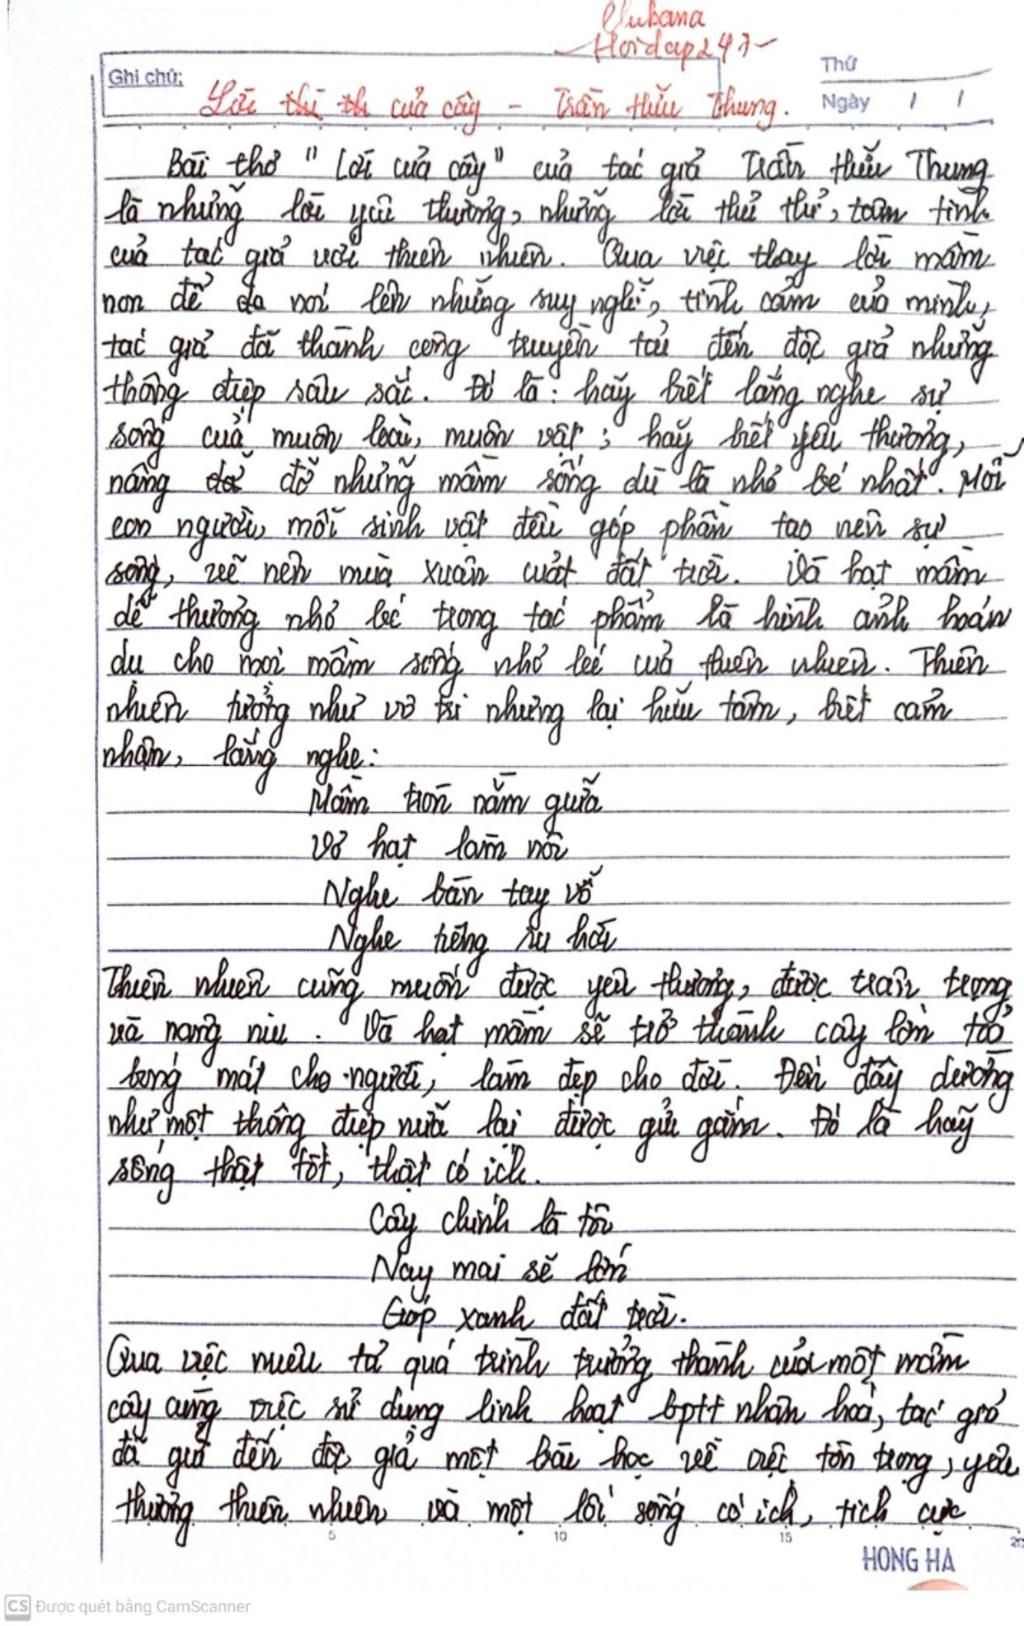 Yubana
Hoidap247
Ghi chú:
Thứ
Ngày / /
Lời của cây - Trần Hữu Thung.
Bài thơ "Lời của cây" của tác giả Trần Hữu Thung
là những lời yêu thương, những lời thủ thỉ, tâm tình
của tác giả với thiên nhiên. Qua việc thay lời mầm
non để nói lên những suy nghĩ, tình cảm của mình,
tác giả đã thành công truyền tải đến độc giả những
thông điệp sâu sắc. Đó là: hãy biết lắng nghe sự
sống của muôn loài, muôn vật; hãy biết yêu thương,
nâng đỡ những mầm sống dù là nhỏ bé nhất. Mỗi
con người, mỗi sinh vật đều góp phần tạo nên sự
sống, vẽ nên mùa xuân của đất trời. Và hạt mầm
dễ thương nhỏ bé trong tác phẩm là hình ảnh hoán
dụ cho mọi mầm sống nhỏ bé của thiên nhiên. Thiên
nhiên tưởng như vô tri nhưng lại hữu tâm, biết cảm
nhận, lắng nghe:
Mầm tròn nằm giữa
Vỏ hạt làm nôi
Nghe bàn tay vỗ
Nghe tiếng ru hời
Thiên nhiên cũng muốn được yêu thương, được trân trọng
và nâng niu. Và hạt mầm sẽ trở thành cây lớn toả
bóng mát cho người, làm đẹp cho đời. Đến đây dường
như một thông điệp nữa lại được gửi gắm. Đó là hãy
sống thật tốt, thật có ích.
Cây chính là tôi
Nay mai sẽ lớn
Góp xanh đất trời.
Qua việc miêu tả quá trình trưởng thành của một mầm
cây cùng việc sử dụng linh hoạt bptt nhân hoá, tác giả
đã gửi đến độc giả một bài học về việc tôn trọng, yêu
thương thiên nhiên và một lối sống có ích, tích cực
5 10 15 20
HONG HA
CS Được quét bằng CamScanner